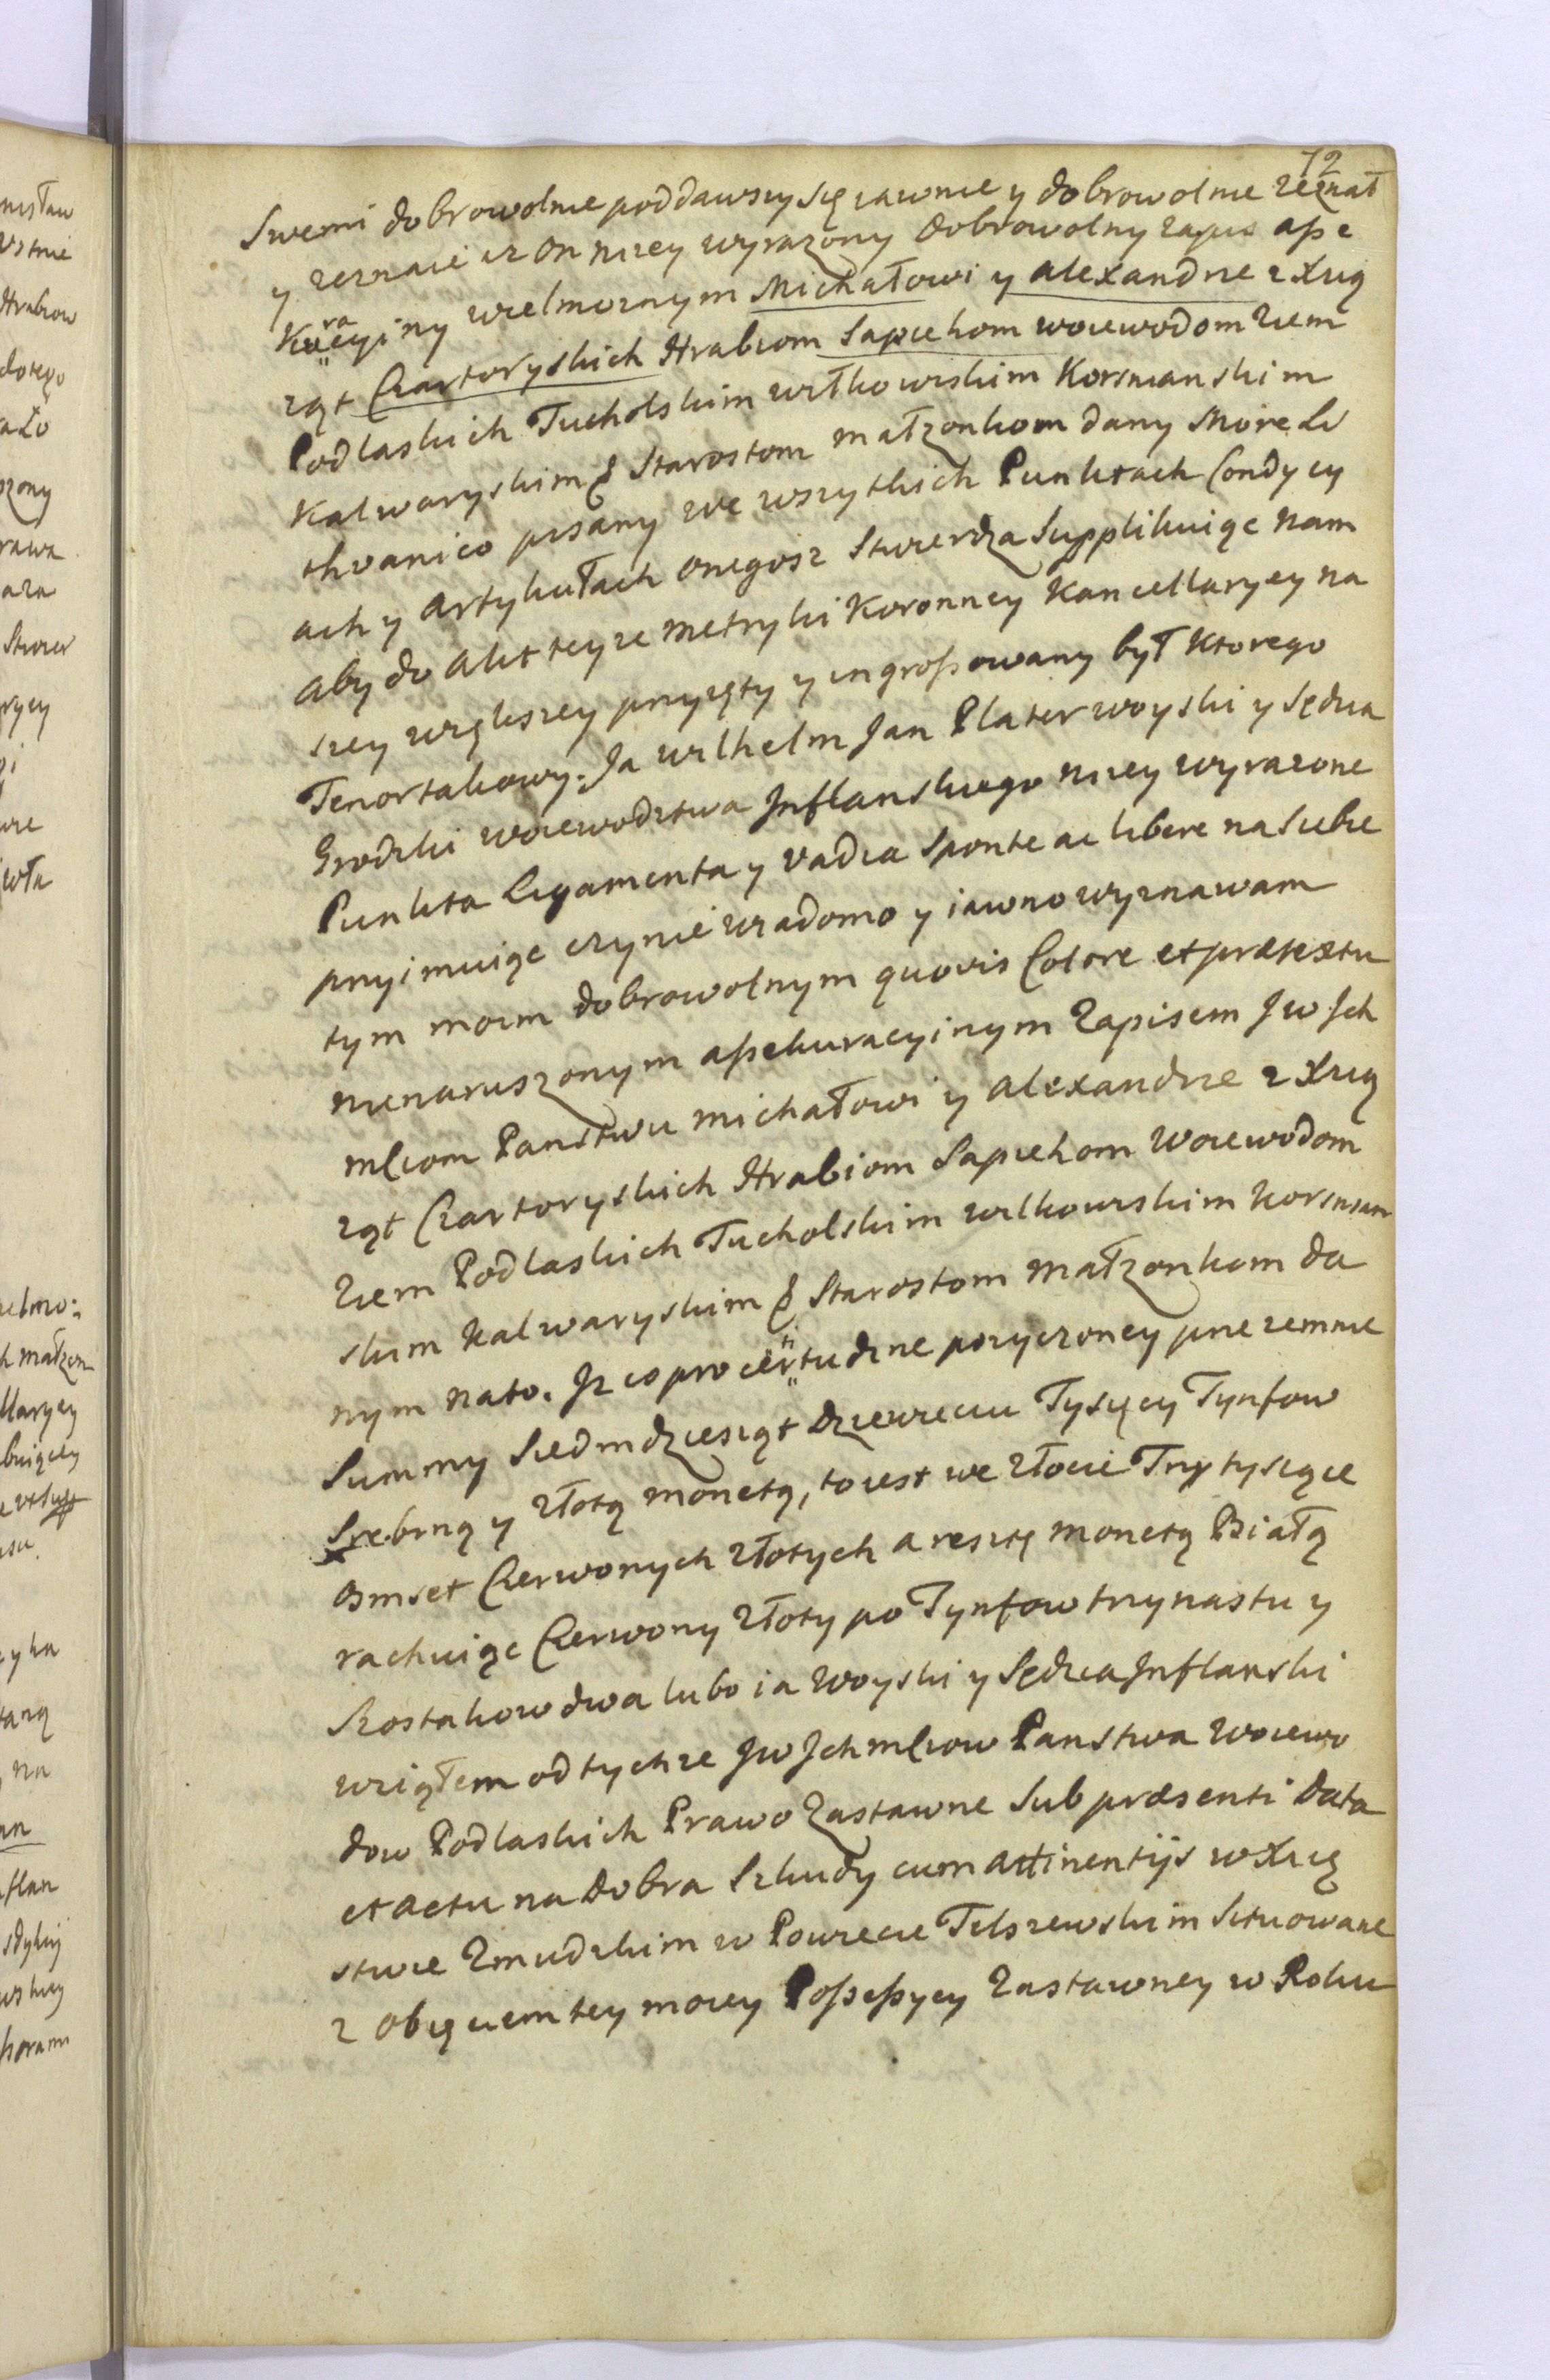 72
Swemi dobrowolnie poddawszy się iawnie y dobrowolnie zeznał
y zeznaie iz on nizey wyrazony dobrowolny zapis asse
kuracyiny wielmoznym Michałowi y Alexandrze z Xsią
ząt Czartoryskich Hrabiom Sapiehom woiewodom ziem
Podlaskich Tucholskim wiłkowiskim Korsnianskim
Kalwaryskim & Starostom małzonkom dany More Li
thvanico pisany we wszytkich Punktach Condycy
ach y Artykułach onegosz stwierdza Supplikuiąc nam
aby do Akt teyze metryki Koronney Kancellaryey na
szey większey przyięty y ingrossowany był ktorego
Tenor takowy: Ja wilhelm Jan Plater woyski y Sędzia
Grodzki woiewodztwa Inflanskiego nizey wyrazone
Punkta Ligamenta y vadia sponte ac libere na siebie
przyimuiąc czynie wiadomo y iawno wyznawam
tym moim dobrowolnym quovis Colore et prætextu
nienaruszonym assekuracyinym Zapisem Jw Ich
mciom Panstwu michałowi y Alexandrze z Xsią
ząt Czartoryskich Hrabiom Sapiehom Woiewodom
Ziem Podlaskich Tucholskim wilkowiskim Korsnian
skim Kalwaryskim & Starostom małzonkom da
nym na to. Iz co pro certitudine pozyczoney przezemnie
Summy Siedmdziesiąt Dziewięciu Tysięcy Tynfow
Srebrną y złotą monetą, to iest we złocie Trzy tysiące
osmset Czerwonych złotych a resztę monetą Białą
rachuiąc Czerwony złoty po Tynfow trzynastu y
Szostakow dwa lubo ia Woyski y Sędzia Inflanski
wziąłem od tychze Jw Ichmciow Panstwa woiewo
dow Podlaskich Prawo Zastawne Sub præsenti Data
et actu na Dobra Szkudy cum attinentijs w Xsię
stwie Zmudzkim w Powiecie Telszewskim Situowane
z obięciem tey moiey Possessyey Zastawney w Roku